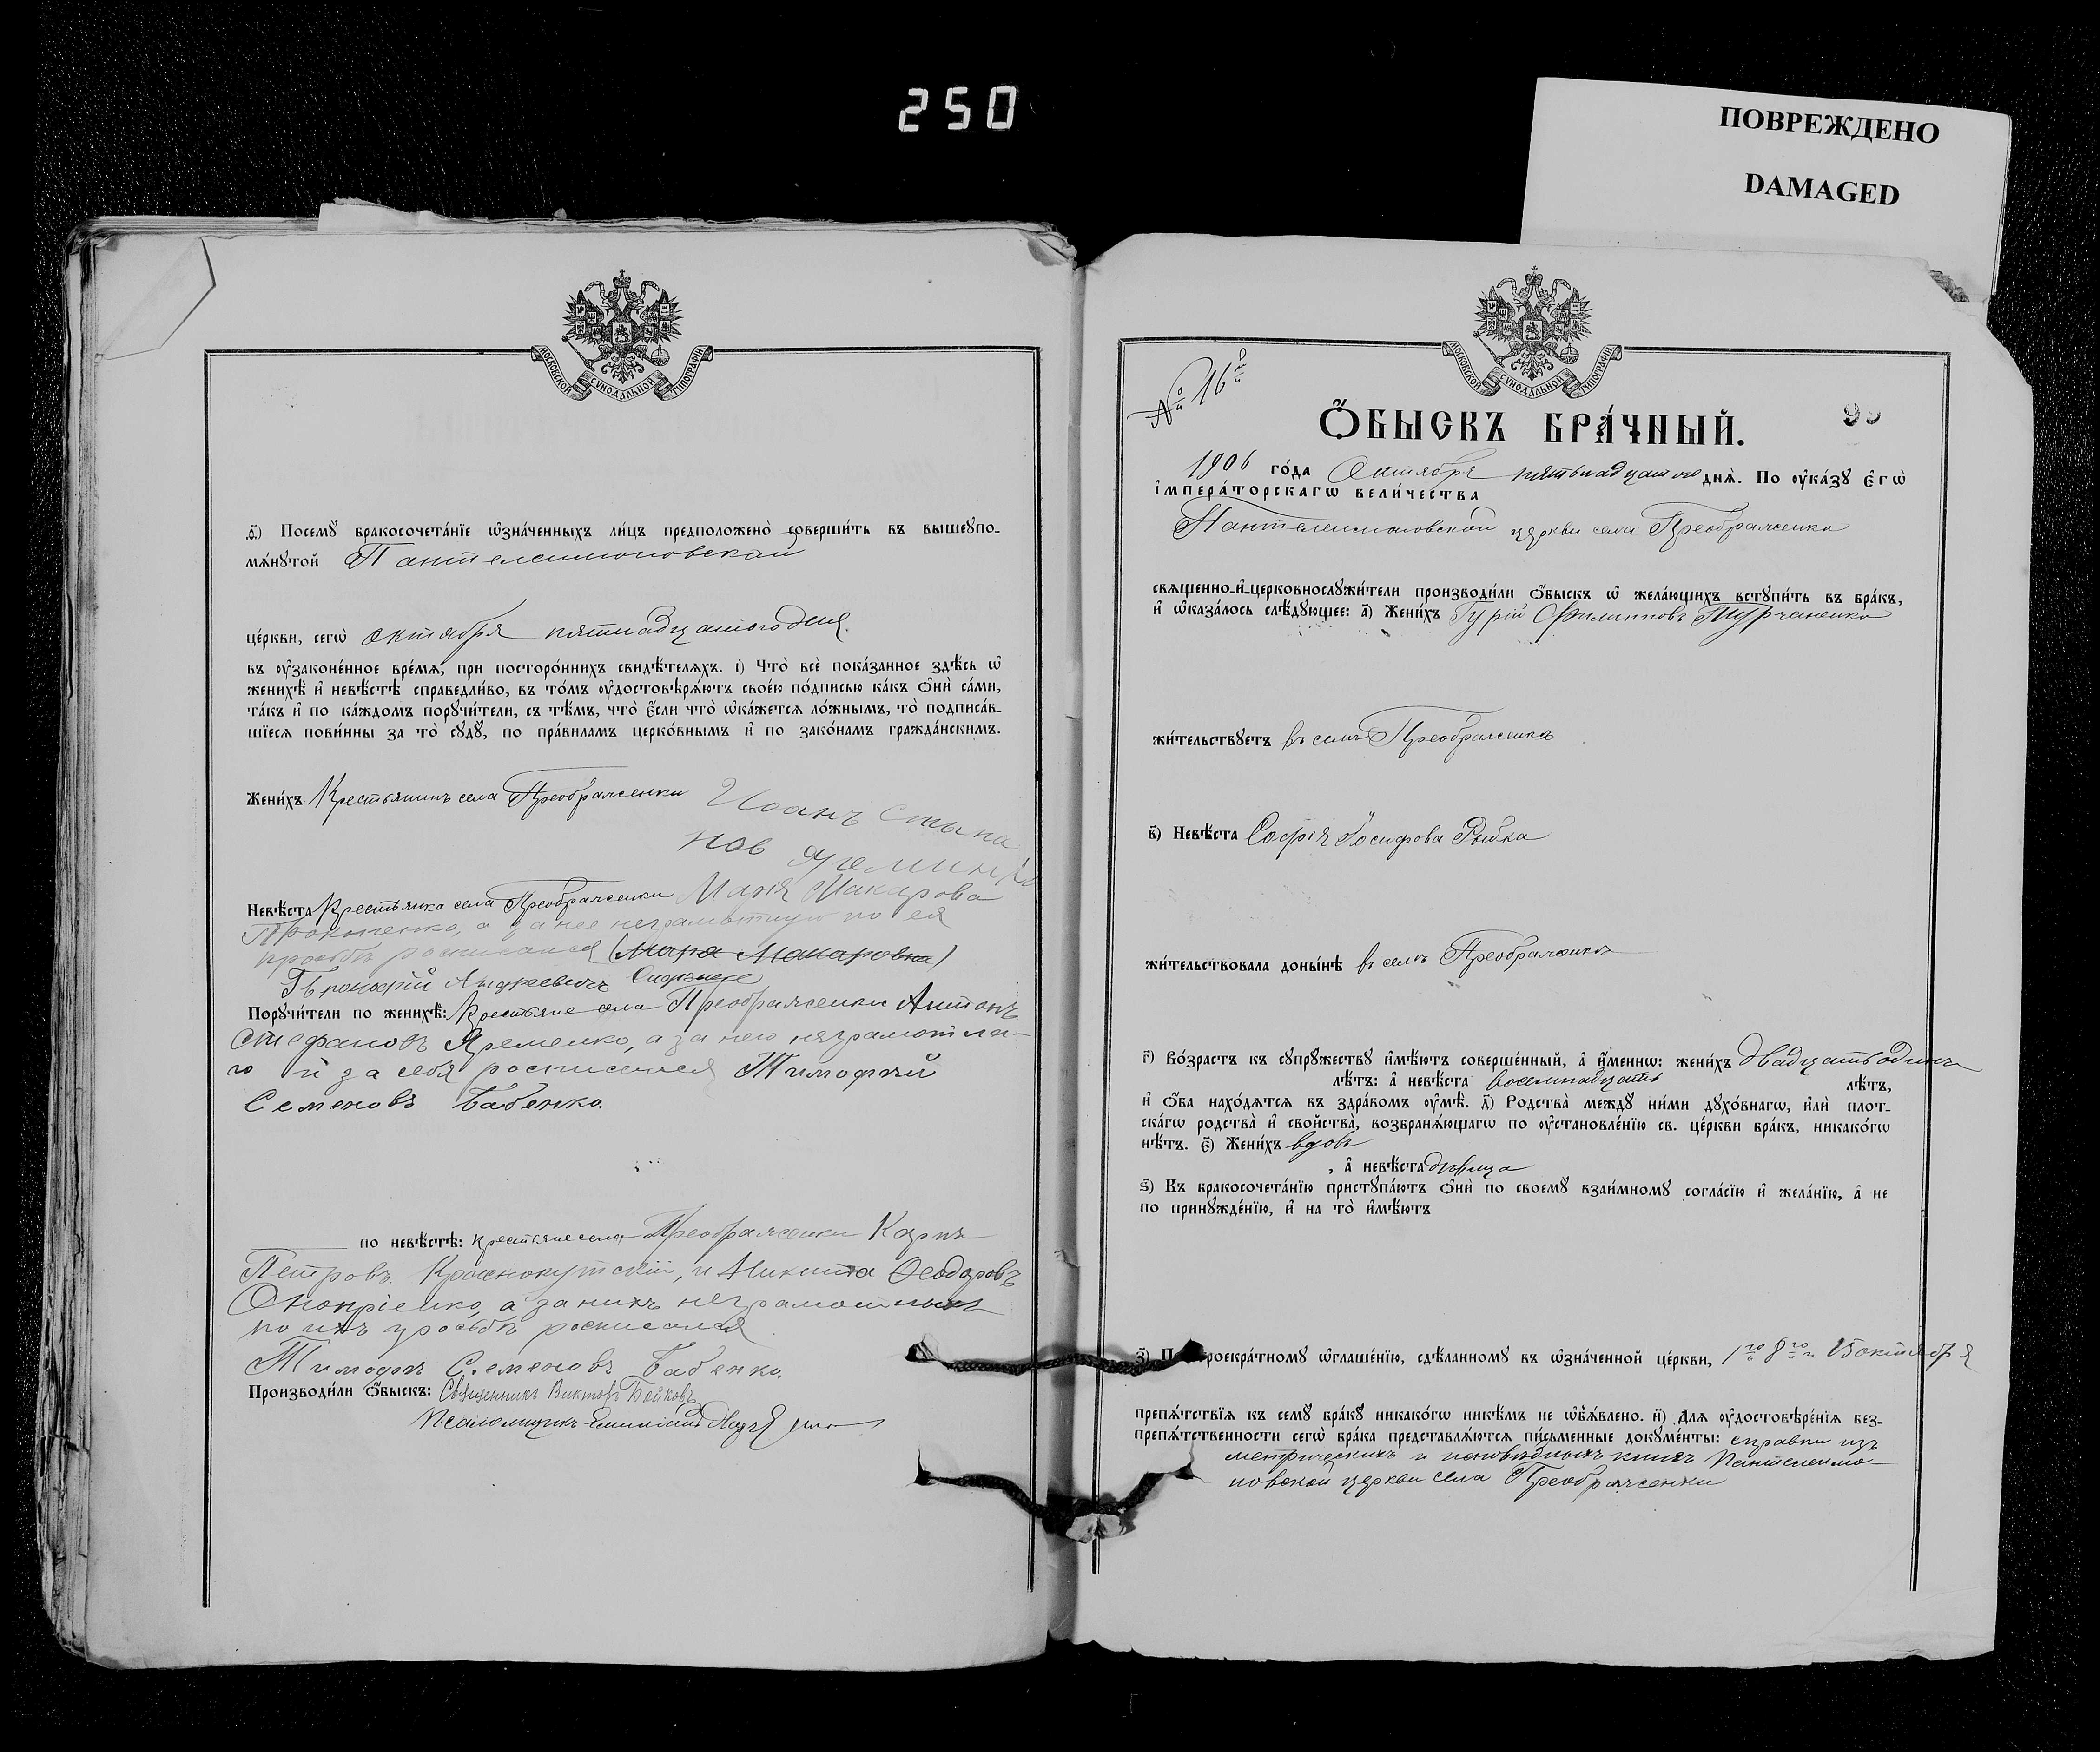 250
ПОВРЕЖДЕНО
DAMAGED
МОСКОВСКОЙ СѴНОДАЛЬНОЙ ТИПОГРАФІИ
ѳ҃) Посемꙋ бракосочета́нїе ѡ҆зна́ченныхъ ли́цъ предположено̀ соверши́ть въ вышеꙋпо-
мѧ́нꙋтой Пантелеимоновской
це́ркви, сегѡ̀ октября пятнадцатого дня.
въ ѹ҆законе́нное вре́мѧ, при посторо́ннихъ свидѣ́телѧхъ. і҃) Что̀ всѐ пока́занное здѣ́сь ѡ҆
женихѣ̀ и҆ невѣ́стѣ справедли́во, въ то́мъ ѹ҆достовѣрѧ́ютъ свое́ю по́дписью ка́къ ѻ҆нѝ са́ми,
та́къ и҆ по ка́ждомъ порꙋчи́тели, съ тѣ́мъ, что̀ є҆́сли что̀ ѡ҆ка́жетсѧ ло́жнымъ, то̀ подписа́в-
шїесѧ пови́нны за то̀ сꙋдꙋ̀, по пра́виламъ церко́внымъ и҆ по зако́намъ гражда́нскимъ.
Жени́хъ Крестьянинъ села Преображенки Иоанъ Стыпа
нов
Невѣ́ста Крестьянка села Преображенки Марія Макарова
Прокопенко, а за нее неграмотную по ея
просьбѣ росписался (Мара Макаровна)
Андреевичъ
Порꙋчи́тели по женихѣ̀: Крестьяне села Преображенки Антонъ
Стефановъ Яременко, а за него неграмотна-
го и за себя росписался Тимофей
Семеновъ Бабенко.
по невѣ́стѣ: крестьяне села Преображенки Карпъ
Петровъ Краснокутскій, и Никита Ѳеодоровъ
Онопріенко, а за нихъ неграмотныхъ
по ихъ просьбѣ росписался
Тимофей Семеновъ Бабенко.
Производи́ли ѻ҆́быскъ: Священникъ Викторъ Бойковъ
Псаломщикъ
МОСКОВСКОЙ СѴНОДАЛЬНОЙ ТИПОГРАФІИ
№ 16й
Ѻ҆́БЫСКЪ БРА́ЧНЫЙ.
1906 го́да Октября пятьнадцатое днѧ̀. По ѹ҆ка́зꙋ Є҆гѡ̀
і҆мпера́торскагѡ вели́чества
Пантелеимоновской церкви села Преображенки
свѧщенно-и҆-церковнослꙋжи́тели производи́ли ѻ҆́быскъ ѡ҆ жела́ющихъ встꙋпи́ть въ бра́къ,
и҆ ѡ҆каза́лось слѣ́дꙋющее: а҃) Жени́хъ Гурій Филипповъ Турченко
жи́тельствꙋетъ въ селѣ Преображенкѣ
в҃) Невѣ́ста Софія Іосифова Рыбка
жи́тельствовала доны́нѣ въ селѣ Преображенкѣ
г҃) Во́зрастъ къ сꙋпрꙋ́жествꙋ и҆мѣ́ютъ соверше́нный, а҆ и҆́меннѡ: жени́хъ двадцать одинъ
лѣ́тъ: а҆ невѣ́ста восемнадцать лѣ́тъ,
и҆ ѻ҆́ба нахо́дѧтсѧ въ здра́вомъ ѹ҆мѣ̀. д҃) Родства̀ междꙋ̀ ни́ми дꙋхо́внагѡ, и҆лѝ плот-
ска́гѡ родства̀ и҆ сво́йства̀, возбранѧ́ющагѡ по ѹ҆становле́нїю св. це́ркви бра́къ, никако́гѡ
нѣ́тъ. є҃) Жени́хъ вдовъ
, а҆ невѣ́ста дѣвица
ѕ҃) Къ бракосочета́нїю пристꙋпа́ютъ ѻ҆нѝ по своемꙋ̀ взаи́мномꙋ согла́сїю и҆ жела́нїю, а҆ не
по принꙋжде́нїю, и҆ на то̀ и҆мѣ́ютъ
з҃) По троекра́тномꙋ ѡ҆глаше́нїю, сдѣ́ланномꙋ въ ѡ҆зна́ченной це́ркви, 1го 8го и 15 октября
препѧ́тствїѧ къ семꙋ̀ бра́кꙋ никако́гѡ никѣ́мъ не ѡ҆б̾ѧ́влено. и҃) Длѧ ѹ҆достовѣре́нїѧ без-
препѧ́тственности сегѡ̀ бра́ка представлѧ́ютсѧ пи́сьменные докꙋме́нты: справки изъ
метрическихъ и исповѣдныхъ книгъ Пантелеимо-
новской церкви села Преображенки